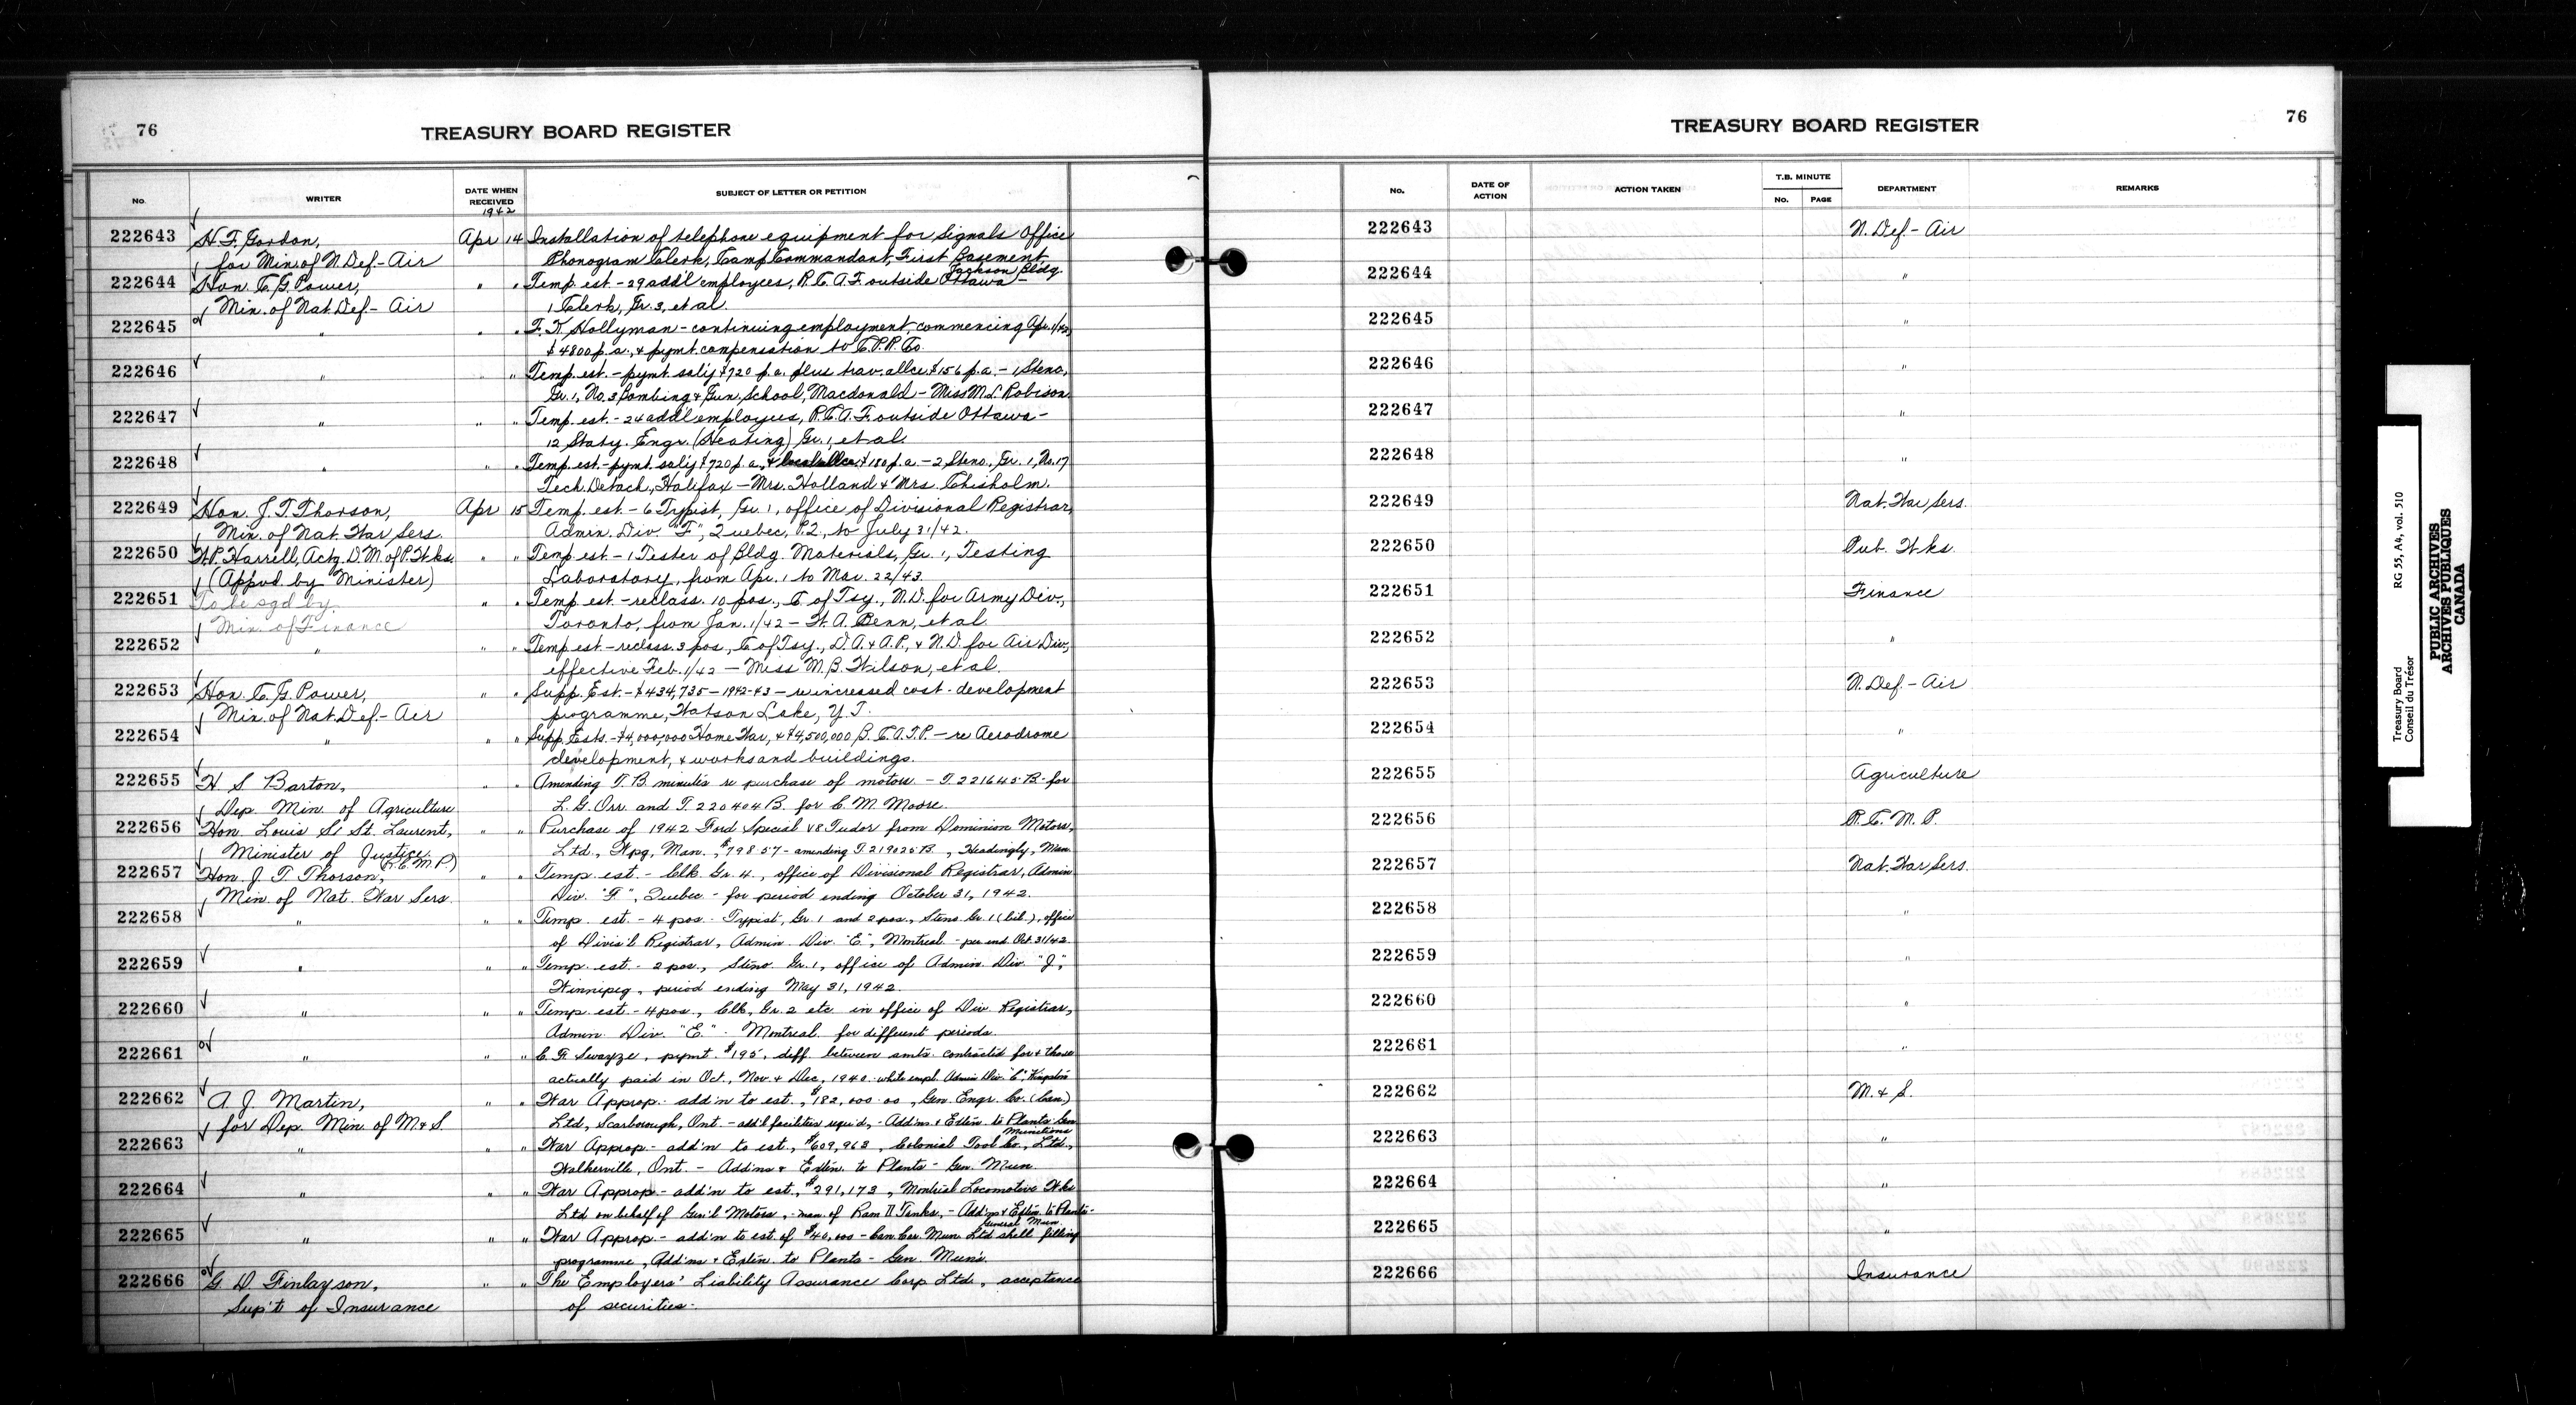 76
TREASURY BOARD REGISTER
No.
WRITER
DATE WHEN RECEIVED
1942
SUBJECT OF LETTER OR PETITION
222643 H. F. Gordon, Apr 14 Installation of telephone equipment for Signals Office
for Min. of N. Def. - Air Phonogram Clerk, Camp Commandant, First Basement,
Jackson Bldg.
222644 Hon. C. G. Power, " " Temp. est. - 29 add'l employees, R.C.A.F. outside Ottawa -
Min. of Nat. Def. - Air 1 Clerk, Gr. 3, et al.
222645 " " " F. K. Hollyman - continuing employment, commencing Apr. 1/42,
$4800 p.a., & pymt. compensation to C.P.R. Co.
222646 " " Temp. est. - pymt. sal'y $720 p.a. plus trav. allce. $156 p.a. - 1 Steno.,
Gr. 1, No. 3 Bombing & Gun. School, Macdonald - Miss M. L. Robison.
222647 " " " Temp. est. - 24 add'l employees, R.C.A.F. outside Ottawa -
12 Staty. Engr. (Heating) Gr. 1, et al.
222648 " " " Temp. est. - pymt. sal'y $720 p.a., & $180 p.a. - 2 Steno., Gr. 1, No. 17
Tech. Detach., Halifax - Mrs. Holland & Mrs. Chisholm.
222649 Hon. J. T. Thorson, Apr 15 Temp. est. - 6 Typist, Gr. 1, office of Divisional Registrar,
Min. of Nat. War Sers. Admin. Div. "F", Quebec, P.Q., to July 31/42.
222650 W. P. Harrell, Actg. D. M. of P. Wks. " " Temp. est. - 1 Tester of Bldg. Materials, Gr. 1, Testing
(Appvd. by Minister) Laboratory, from Apr. 1 to Mar. 22/43.
222651 To be sgd by " " Temp. est. - reclass. 10 pos., C. of Tsy., N.D. for Army Div.,
Min. of Finance Toronto, from Jan. 1/42 - W. A. Benn, et al.
222652 " " " Temp. est. - reclass. 3 pos., C. of Tsy., D.A. & A.P., & N.D. for Air Div.,
effective Feb. 1/42 - Miss M. B. Wilson, et al.
222653 Hon. C. G. Power, " " Supp. Est. - $434,735 - 1942-43 - re increased cost - development
Min. of Nat. Def. - Air programme, Watson Lake, Y.T.
222654 " " " Supp. Ests. - $4,000,000 Home War, & $4,500,000 B.C.A.T.P. - re Aerodrome
development, & works and buildings.
222655 H. S. Barton, " " Amending T.B. minutes re purchase of motors - T. 221645 B. for
Dep. Min. of Agriculture L. G. Orr and T. 220404 B. for C. M. Moore.
222656 Hon. Louis S. St. Laurent, " " Purchase of 1942 Ford Special V8 Tudor from Dominion Motors,
Minister of Justice. (R.C.M.P.) Ltd., Wpg, Man., $798.57 - amending T. 219025 B., Headingly, Man.
222657 Hon. J. T. Thorson, " " Temp. est. - Clk. Gr. 4, office of Divisional Registrar, Admin.
Min. of Nat. War Sers. Div. "F", Quebec - for period ending October 31, 1942.
222658 " " " Temp. est. - 4 pos. Typist, Gr. 1 and 2 pos., Steno. Gr. 1 (bil.), office
of Divis'l Registrar, Admin. Div. "E", Montreal - per. end. Oct. 31/42.
222659 " " " Temp. est. - 2 pos., Steno. Gr. 1, office of Admin. Div. "J",
Winnipeg, period ending May 31, 1942.
222660 " " " Temp. est. - 4 pos., Clk., Gr. 2 etc. in office of Div. Registrar,
Admin. Div. "E" - Montreal for different periods.
222661 " " " C. F. Swayze, pymt. $195, diff. between amts. contracted for & those
actually paid in Oct., Nov. & Dec., 1940 - while empl. Admin Div. "C", Kingston
222662 A. J. Martin, " " War Approp. - add'n to est., $182,000.00, Gen. Engr. Co. (Can.)
for Dep. Min. of M. & S. Ltd., Scarborough, Ont. - add'l facilities requ'd, - Add'ns & Extn. to Plants Gen.
Munitions
222663 " " " War Approp. - add'n to est., $609,963, Colonial Tool Co., Ltd.,
Walkerville, Ont. - Add'ns & Extn. to Plants - Gen. Mun.
222664 " " " War Approp. - add'n to est., $291,173, Montreal Locomotive Wks
Ltd on behalf of Gen'l Motors, - man. of Ram II Tanks, - Add'ns & Extn. to Plants -
General Mun.
222665 " " " War Approp. - add'n to est. of $40,000 - Can. Car. Mun. Ltd shell filling
programme, Add'ns & Extn. to Plants - Gen. Mun's.
222666 G. D. Finlayson, " " The Employers' Liability Assurance Corp. Ltd., acceptance
Sup't of Insurance of securities.
76
TREASURY BOARD REGISTER
No.
DATE OF ACTION
ACTION TAKEN
T.B. MINUTE
No.
PAGE
DEPARTMENT
REMARKS
222643 N. Def. - Air
222644 "
222645 "
222646 "
222647 "
222648 "
222649 Nat. War Sers.
222650 Pub. Wks.
222651 Finance
222652 "
222653 N. Def. - Air
222654 "
222655 Agriculture
222656 R.C.M.P.
222657 Nat. War Sers.
222658 "
222659 "
222660 "
222661 "
222662 M. & S.
222663 "
222664 "
222665 "
222666 Insurance
Treasury Board
Conseil du Trésor
RG 55, A4, vol. 510
PUBLIC ARCHIVES
ARCHIVES PUBLIQUES
CANADA